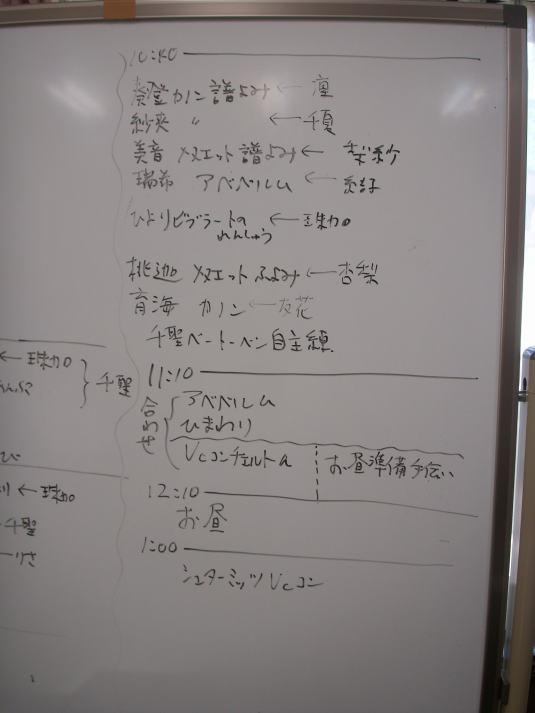 10:40
葵登カノン譜よみ ← 凛
紗来 〃 ← 千夏
美音 メヌエット譜よみ ← 梨紗
瑞希 アベベルム ←
ひよりビブラートの ← 珠加
れんしゅう
桃迦 メヌエットふよみ ← 杏梨
育海 カノン ← 友花
千聖ベートーベン自主練
← 珠加
} 千聖
11:10
合わせ
アベベルム
ひまわり
Vcコンチェルトa
お昼準備手伝い
び
← 珠加
12:10
お昼
千聖
りさ
1:00
シュターミッツVcコン